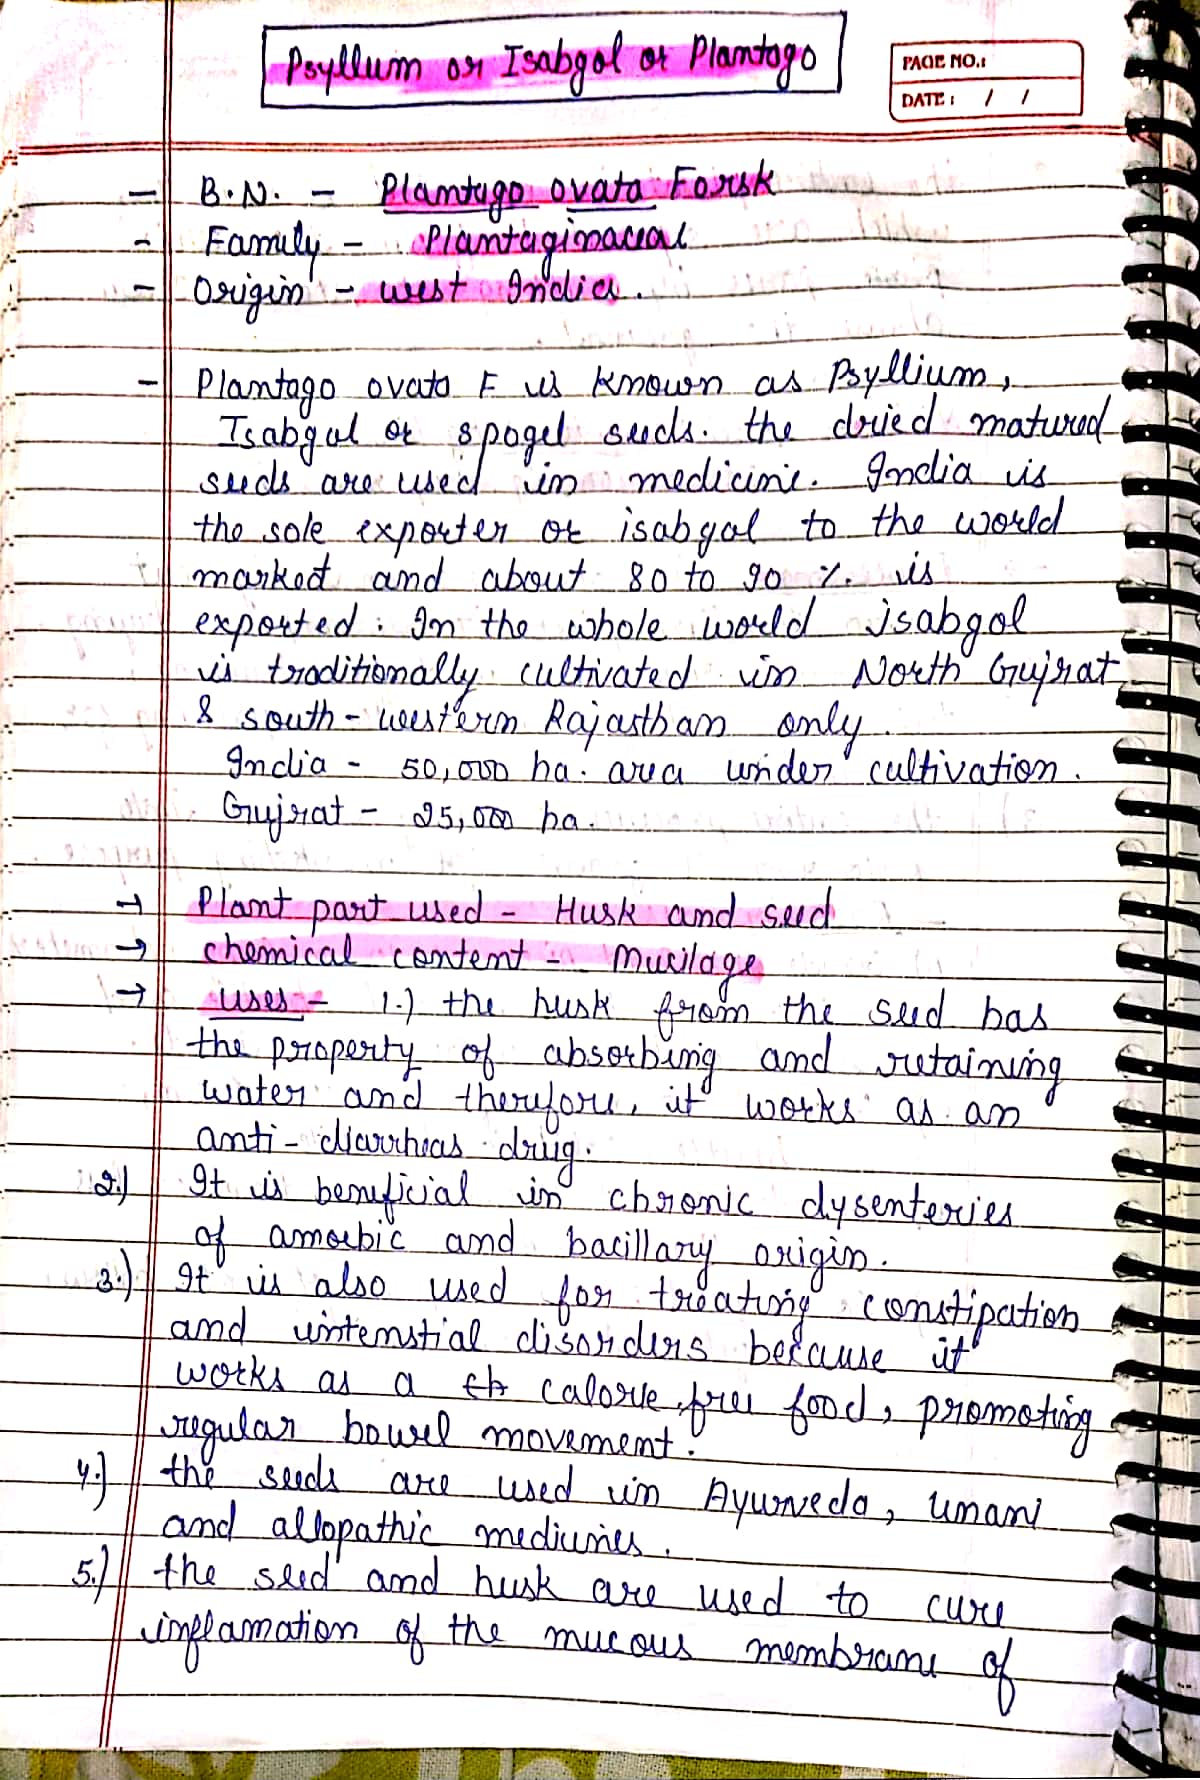 Psyllum or Isabgol or Plantago
PAGE NO.:
DATE: / /
- B.N. - Plantago ovata Forsk
- Family - Plantaginaceal
- Origin - west India.
- Plantago ovata F is known as Psyllium,
Isabgul or spogel seeds. the dried matured
seeds are used in medicine. India is
the sole exporter or isabgol to the world
market and about 80 to 90 % is
exported. In the whole world isabgol
is traditionally cultivated in North Gujrat
& south-western Rajasthan only.
India - 50,000 ha. area under cultivation.
Gujrat - 25,000 ha.
→ Plant part used - Husk and seed
→ chemical content - Mucilage
→ uses - 1.) the husk from the seed has
the property of absorbing and retaining
water and therefore, it works as an
anti-diarrheas drug.
2.) It is beneficial in chronic dysenteries
of amoebic and bacillary origin.
3.) It is also used for treating constipation
and intenstial disorders because it
works as a calorie free food, promoting
regular bowel movement.
4.) the seeds are used in Ayurveda, Unani
and allopathic medicines.
5.) the seed and husk are used to cure
inflamation of the mucous membrane of